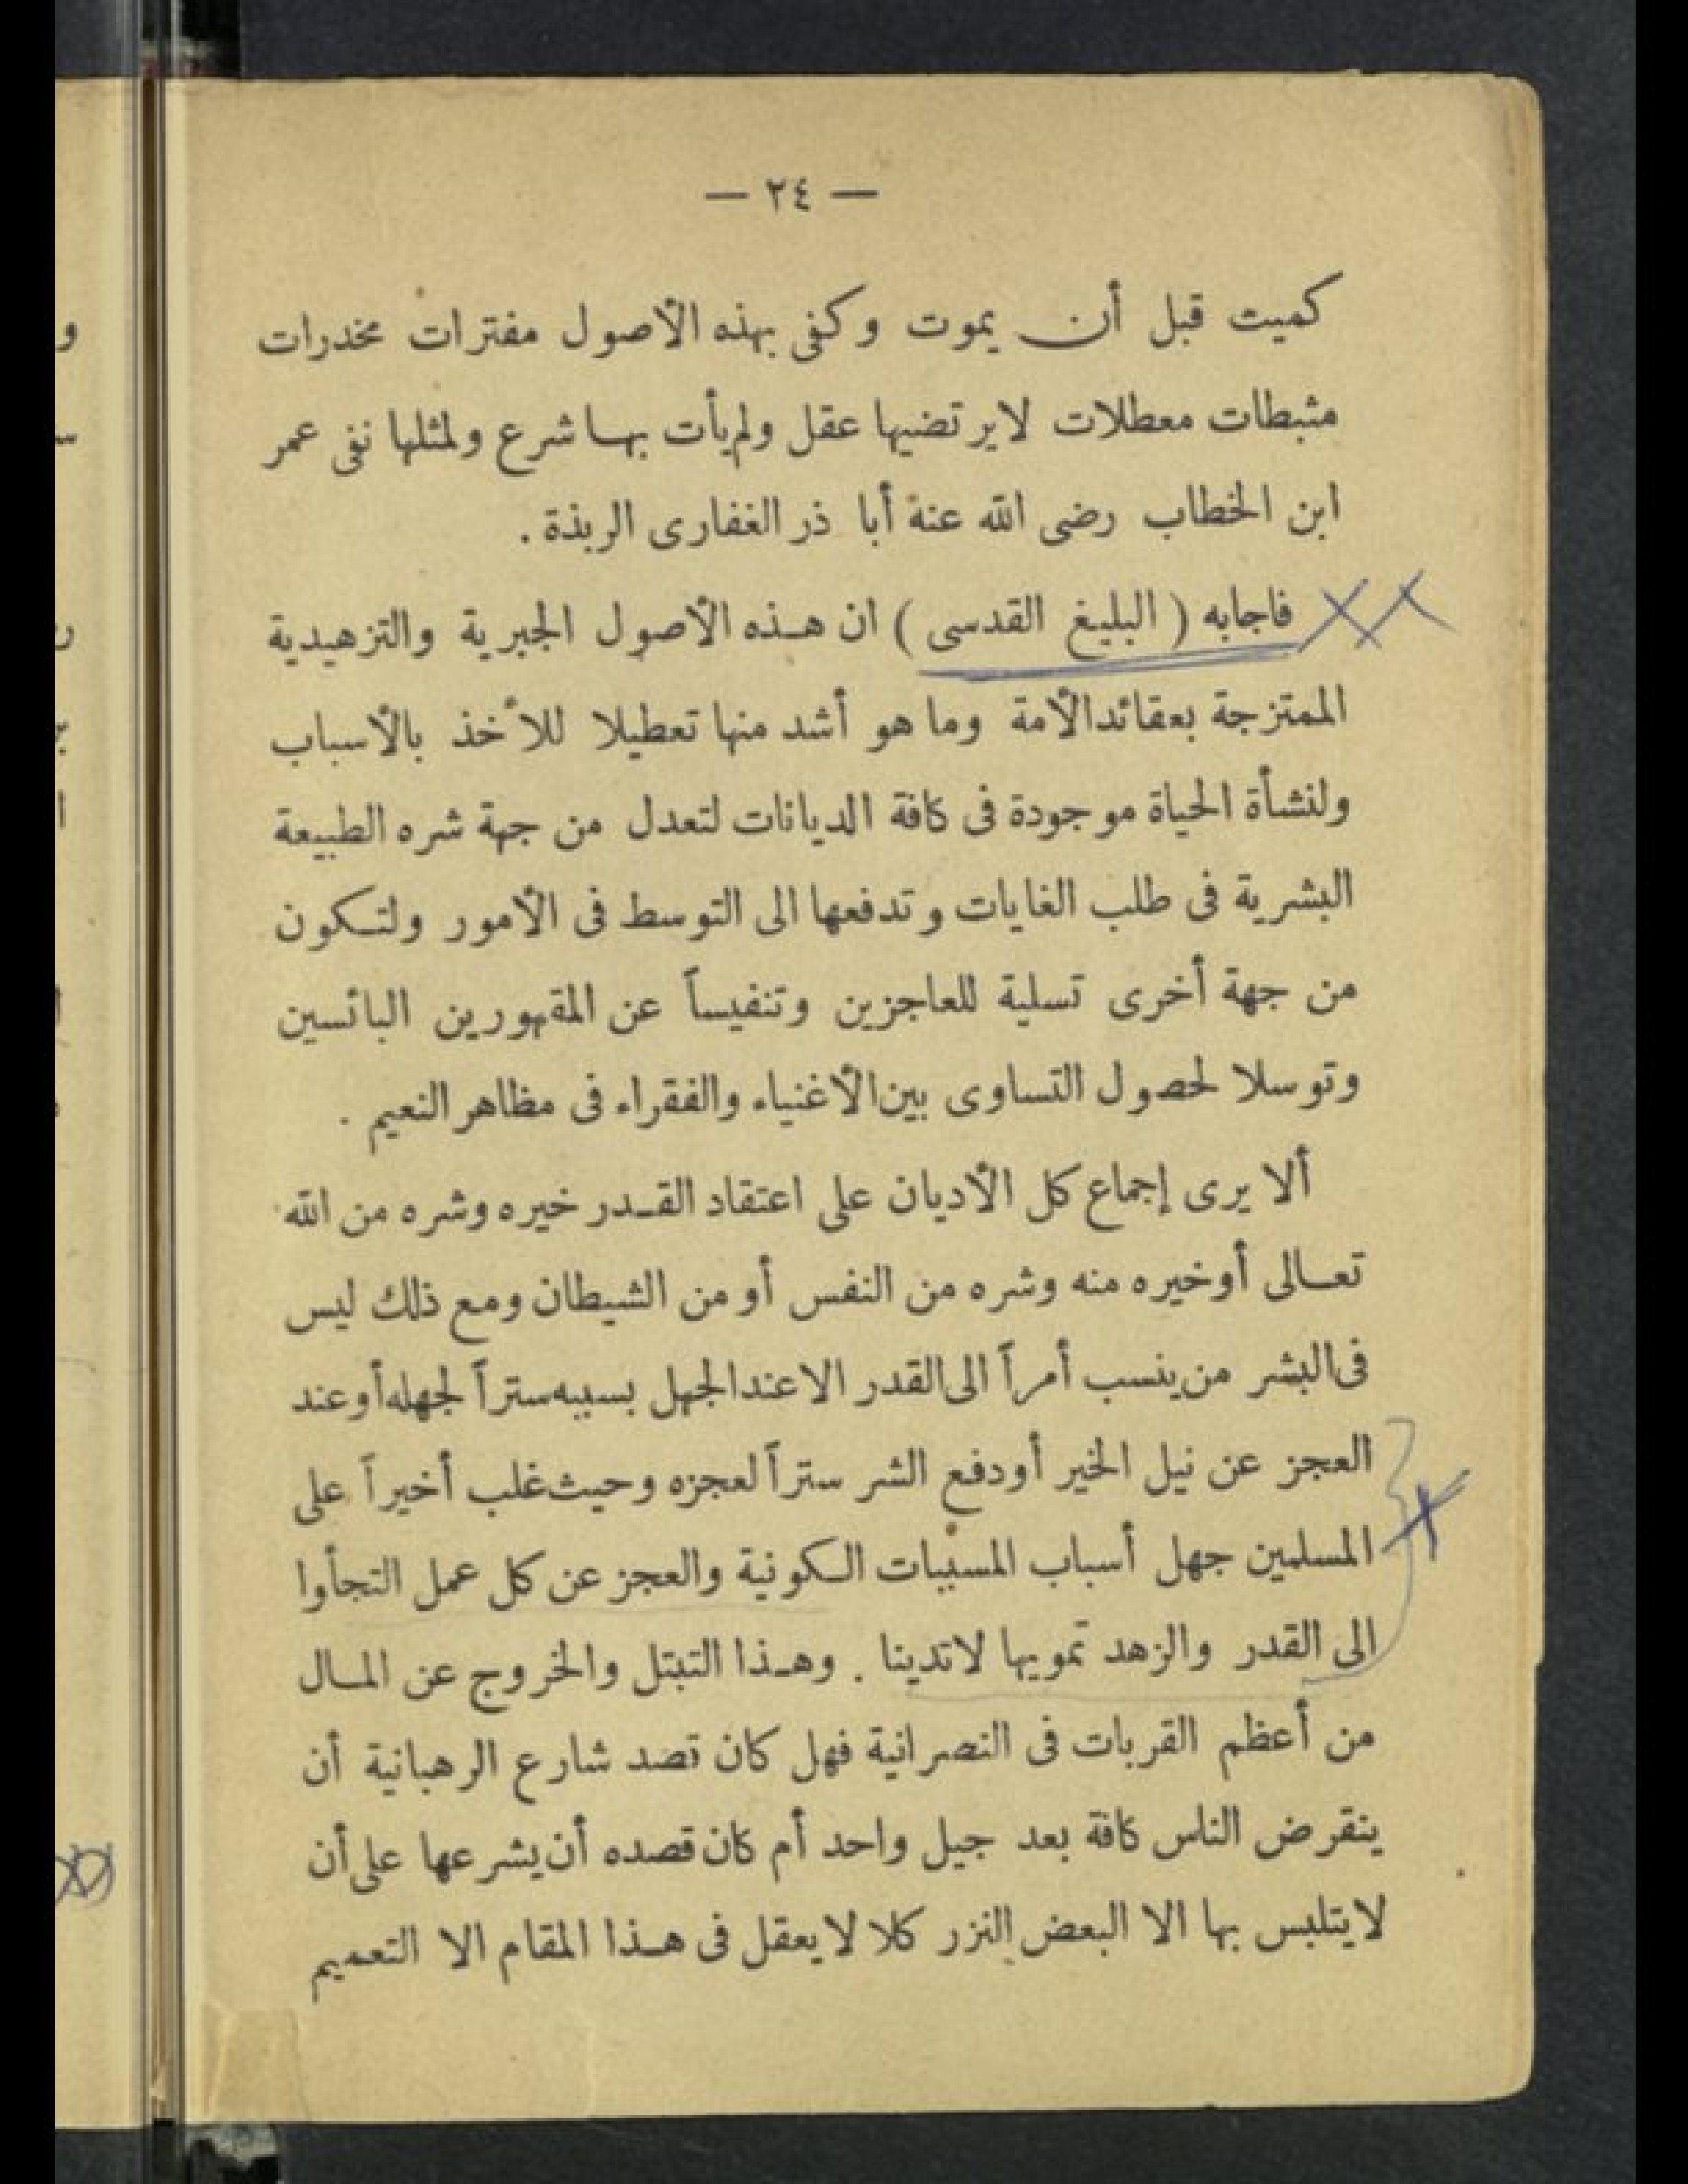 — ٢٤ —
كميت قبل أن يموت وكفى بهذه الأصول مفترات مخدرات
مثبطات معطلات لايرتضيها عقل ولم يأت بها شرع ولمثلها نفى عمر
ابن الخطاب رضى الله عنه أبا ذر الغفارى الربذة .
فاجابه ( البليغ القدسى ) ان هـذه الأصول الجبرية والتزهيدية
الممتزجة بعقائد الأمة وما هو أشد منها تعطيلا للأخذ بالأسباب
ولنشأة الحياة موجودة فى كافة الديانات لتعدل من جهة شره الطبيعة
البشرية فى طلب الغايات وتدفعها الى التوسط فى الأمور ولتكون
من جهة أخرى تسلية للعاجزين وتنفيساً عن المقهورين البائسين
وتوسلا لحصول التساوى بين الأغنياء والفقراء فى مظاهر النعيم .
ألا يرى إجماع كل الأديان على اعتقاد القـدر خيره وشره من الله
تعـالى أوخيره منه وشره من النفس أو من الشيطان ومع ذلك ليس
فى البشر من ينسب أمراً الى القدر الا عند الجهل بسببه ستراً لجهله أوعند
العجز عن نيل الخير أودفع الشر ستراً لعجزه وحيث غلب أخيراً على
المسلمين جهل أسباب المسببات الـكونية والعجز عن كل عمل التجأوا
الى القدر والزهد تمويها لاتدينا . وهـذا التبتل والخروج عن المـال
من أعظم القربات فى النصرانية فهل كان تصد شارع الرهبانية أن
ينقرض الناس كافة بعد جيل واحد أم كان قصده أن يشرعها على أن
لايتلبس بها الا البعض النزر كلا لايعقل فى هـذا المقام الا التعميم